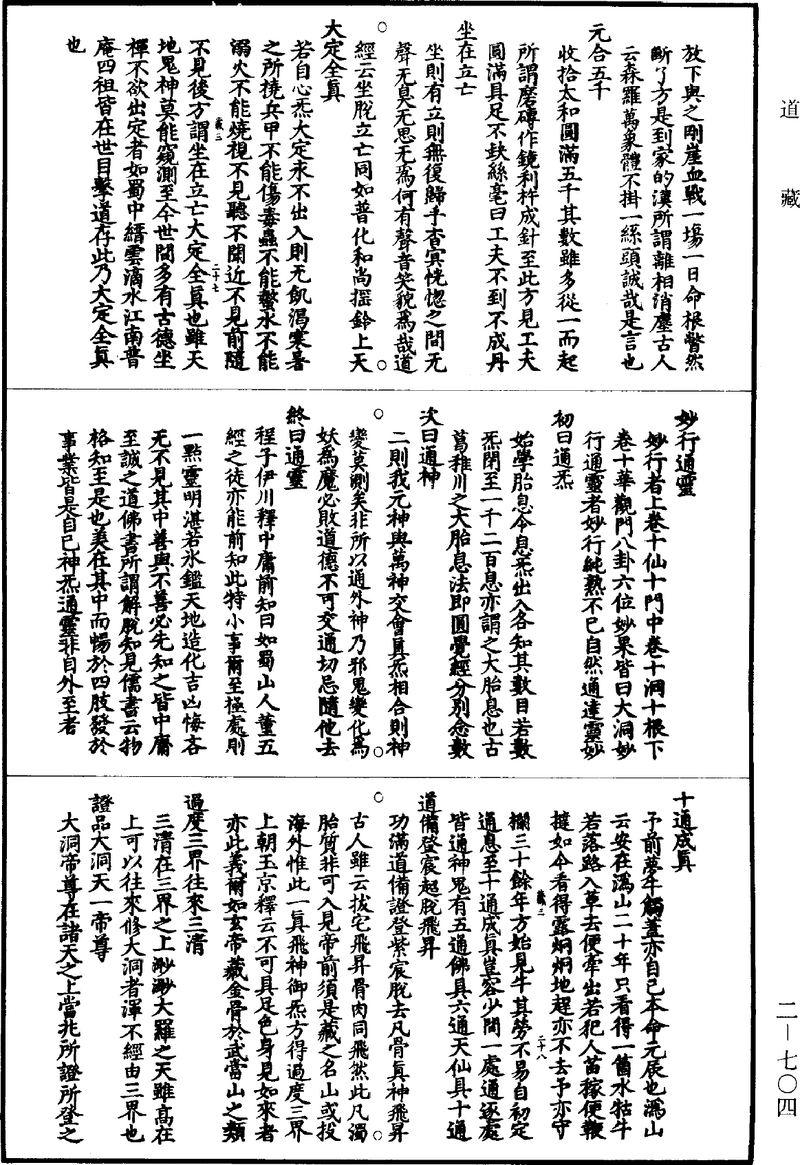 道藏
放下與之剛崖血戰一場一日命根瞥然
斷了方是到家的漢所謂離相消塵古人
云森羅萬象體不掛一絲頭誠哉是言也
元合五千
收拾太和圓滿五千其數雖多從一而起
所謂磨磚作鏡利杵成針至此方見工夫
圓滿具足不䇄絲毫曰工夫不到不成丹
坐在立亡
坐則有立則無復歸乎杳冥恍惚之間无
聲无臭无思无爲何有聲音笑貌爲哉道
經云坐脫立亡同如普化和尚搖鈴上天
大定全真
若自心炁大定永不出入則无飢渴寒暑
之所撓兵甲不能傷毒蟲不能螫水不能
溺火不能燒視不見聽不聞近不見前隨
藏三 二十七
不見後方謂坐在立亡大定全真也雖天
地鬼神莫能窺測至今世間多有古德坐
禪不欲出定者如蜀中縉雲滴水江南普
庵四祖皆在世目擊道存此乃大定全真
也
妙行通靈
妙行者上卷十仙十門中卷十洞十根下
卷十華觀門八卦六位妙果皆曰大洞妙
行通靈者妙行純熟不已自然通達靈妙
初曰通炁
始學胎息令息炁出入各知其數目若數
炁閉至一千二百息亦謂之大胎息也古
葛稚川之大胎息法即圓覺經分別念數
次曰通神
二則我元神與萬神交會真炁相合則神
變莫測矣非所以通外神乃邪鬼變化爲
妖爲魔必敗道德不可交通切忌隨他去
終曰通靈
程子伊川釋中庸前知曰如蜀山人董五
經之徒亦能前知此特小事爾至極處則
一點靈明湛若氷鑑天地造化吉凶悔吝
无不見其中善與不善必先知之皆中庸
至誠之道佛書所謂解脫知見儒書云物
格知至是也美在其中而暢於四肢發於
事業皆是自已神炁通靈非自外至者
十通成真
予前夢牛觸蓋亦自己本命元辰也溈山
云安在溈山二十年只看得一箇水牯牛
若落路入草去便牽出若犯人苗稼便鞭
撻如今看得露炯炯地趕亦不去予亦守
欄三十餘年方始見牛其勞不易自初定
藏三 二十八
通息至十通成真豈容少間一處通逐處
皆通神鬼有五通佛具六通天仙具十通
道備登宸超脫飛昇
功滿道備證登紫宸脫去凡骨真神飛昇
古人雖云拔宅飛昇骨肉同飛然此凡濁
胎質非可入見帝前須是藏之名山或投
海外惟此一真飛神御炁方得過度三界
上朝玉京釋云不可具足色身見如來者
亦此義爾如玄帝藏金骨於武當山之類
過度三界往來三清
三清在三界之上渺渺大羅之天雖高在
上可以往來修大洞者渾不經由三界也
證品大洞天一帝尊
大洞帝尊在諸天之上當兆所證所登之
二－七〇四